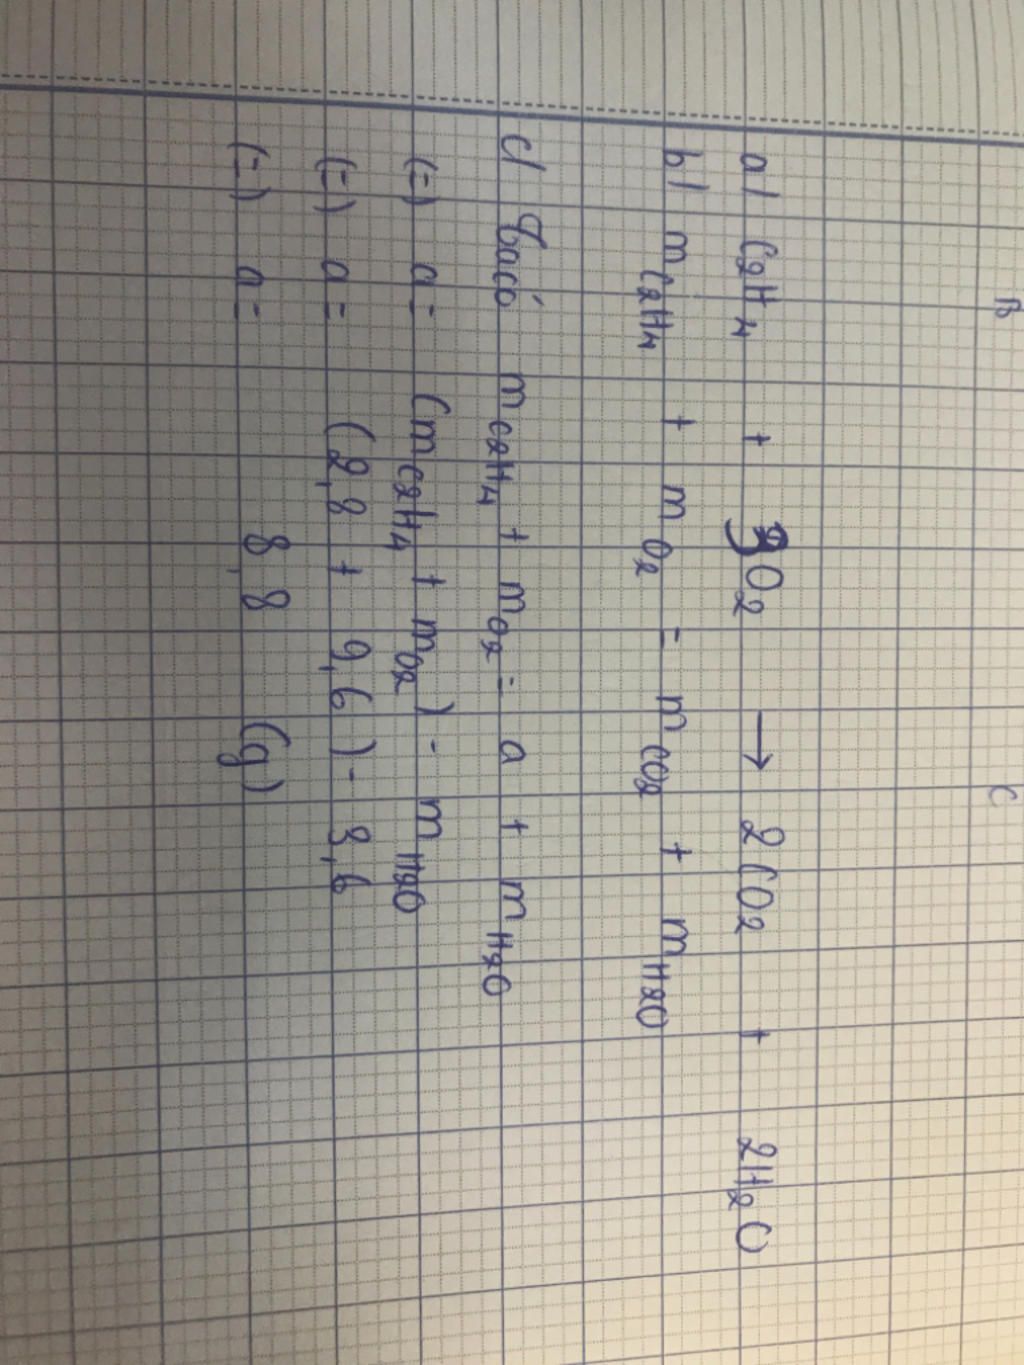 B C
a/ C2H4 + 3O2 → 2CO2 + 2H2O
b/ mC2H4 + mO2 = mCO2 + mH2O
c/ Ta có mC2H4 + mO2 = a + mH2O
(=) a = (mC2H4 + mO2) - mH2O
(=) a = (2,8 + 9,6) - 3,6
(=) a = 8,8 (g)